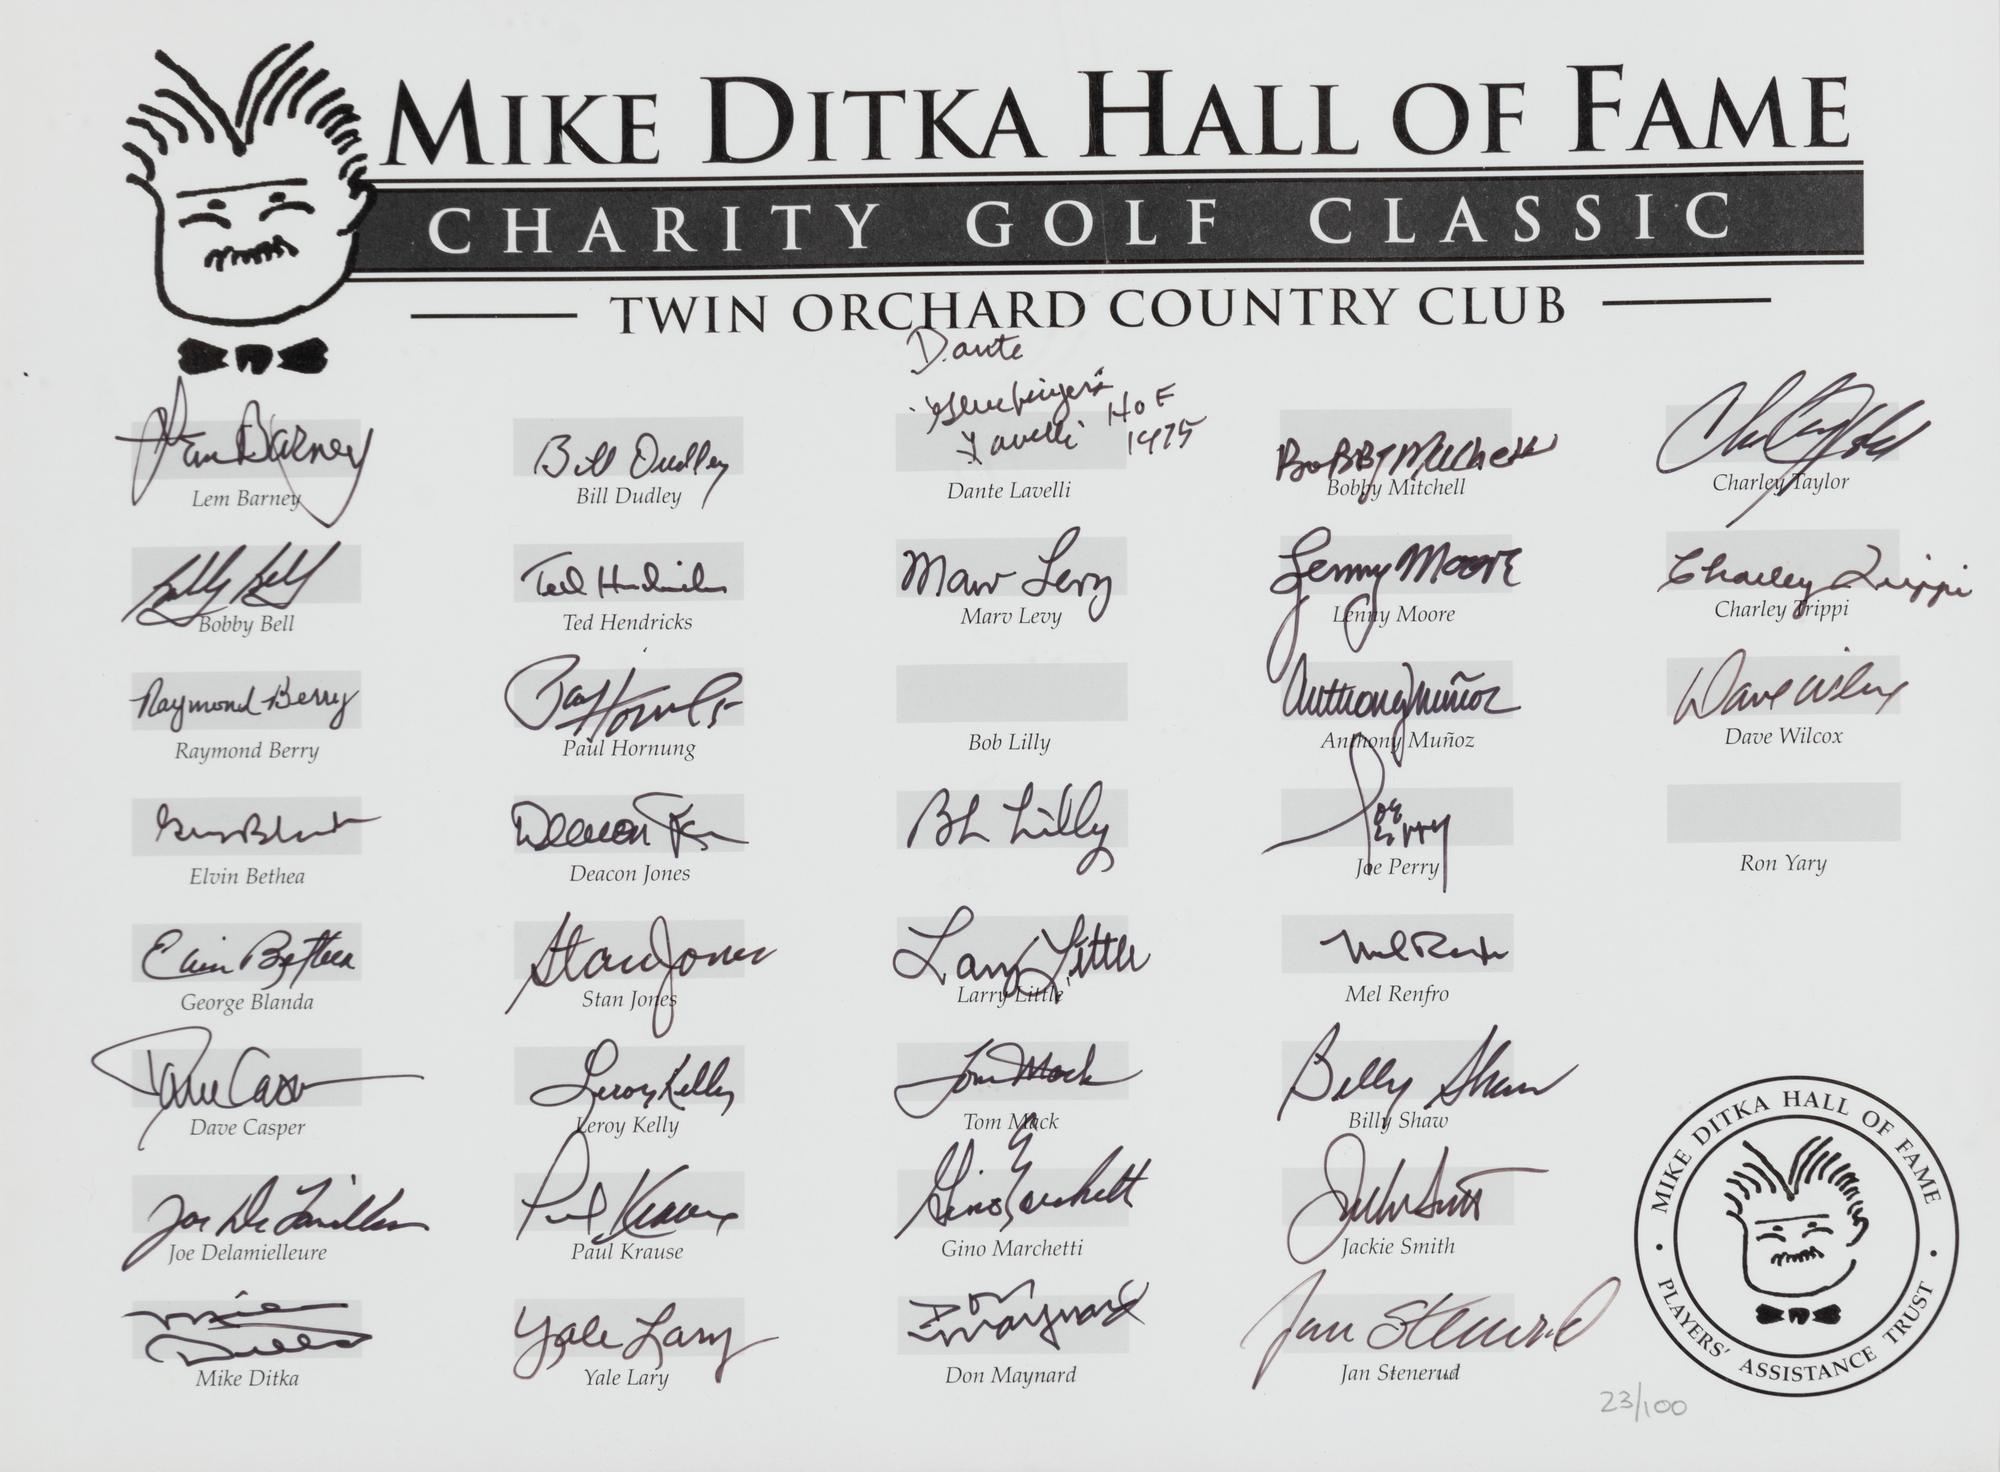 MIKE DITKA HALL OF FAME
CHARITY GOLF CLASSIC
TWIN ORCHARD COUNTRY CLUB
Lem Barney
Lem Barney
Bill Dudley
Bill Dudley
Dante
"Gluefingers"
Lavelli
HOF
1975
Dante Lavelli
Bobby Mitchell
Bobby Mitchell
Charley Taylor
Bobby Bell
Bobby Bell
Ted Hendricks
Ted Hendricks
Marv Levy
Marv Levy
Lenny Moore
Lenny Moore
Charley Trippi
Charley Trippi
Raymond Berry
Raymond Berry
Paul Hornung
Paul Hornung
Bob Lilly
Anthony Muñoz
Anthony Muñoz
Dave Wilcox
Dave Wilcox
Elvin Bethea
Deacon Jones
Deacon Jones
Bob Lilly
Joe Perry
Joe Perry
Ron Yary
Elvin Bethea
George Blanda
Stan Jones
Stan Jones
Larry Little
Larry Little
Mel Renfro
Mel Renfro
Dave Casper
Dave Casper
Leroy Kelly
Leroy Kelly
Tom Mack
Tom Mack
Billy Shaw
Billy Shaw
Joe DeLamielleure
Joe Delamielleure
Paul Krause
Paul Krause
Gino Marchetti
Gino Marchetti
Jackie Smith
Jackie Smith
Mike Ditka
Mike Ditka
Yale Lary
Yale Lary
Don Maynard
Don Maynard
Jan Stenerud
Jan Stenerud
MIKE DITKA HALL OF FAME
PLAYERS' ASSISTANCE TRUST
23/100